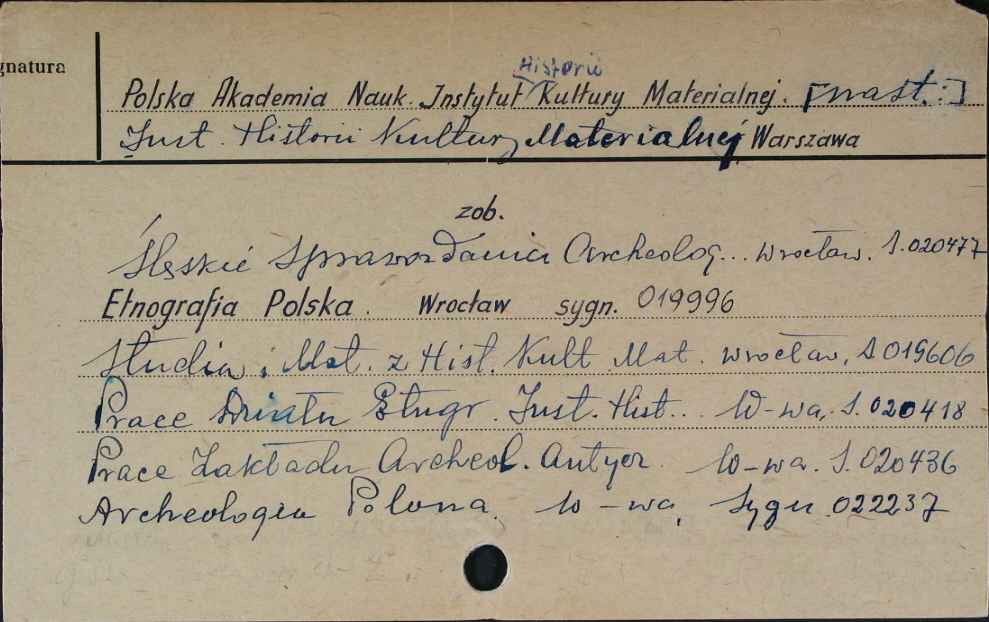 gnatura
Historii
Polska Akademia Nauk. Instytut Kultury Materialnej. [nast.:]
Inst. Historii Kultury Materialnej Warszawa
zob.
Śląskie Sprawozdania Archeolog... Wrocław. S.020477
Etnografia Polska. Wrocław sygn. 019996
Studia i Mat. z Hist. Kult. Mat. Wrocław, S 019606
Prace Działu Etnogr. Inst. Hist... W-wa, S.020418
Prace Zakładu Archeol. Antycz. W-wa. S.020436
Archeologia Polona, W-wa, Sygn. 022237